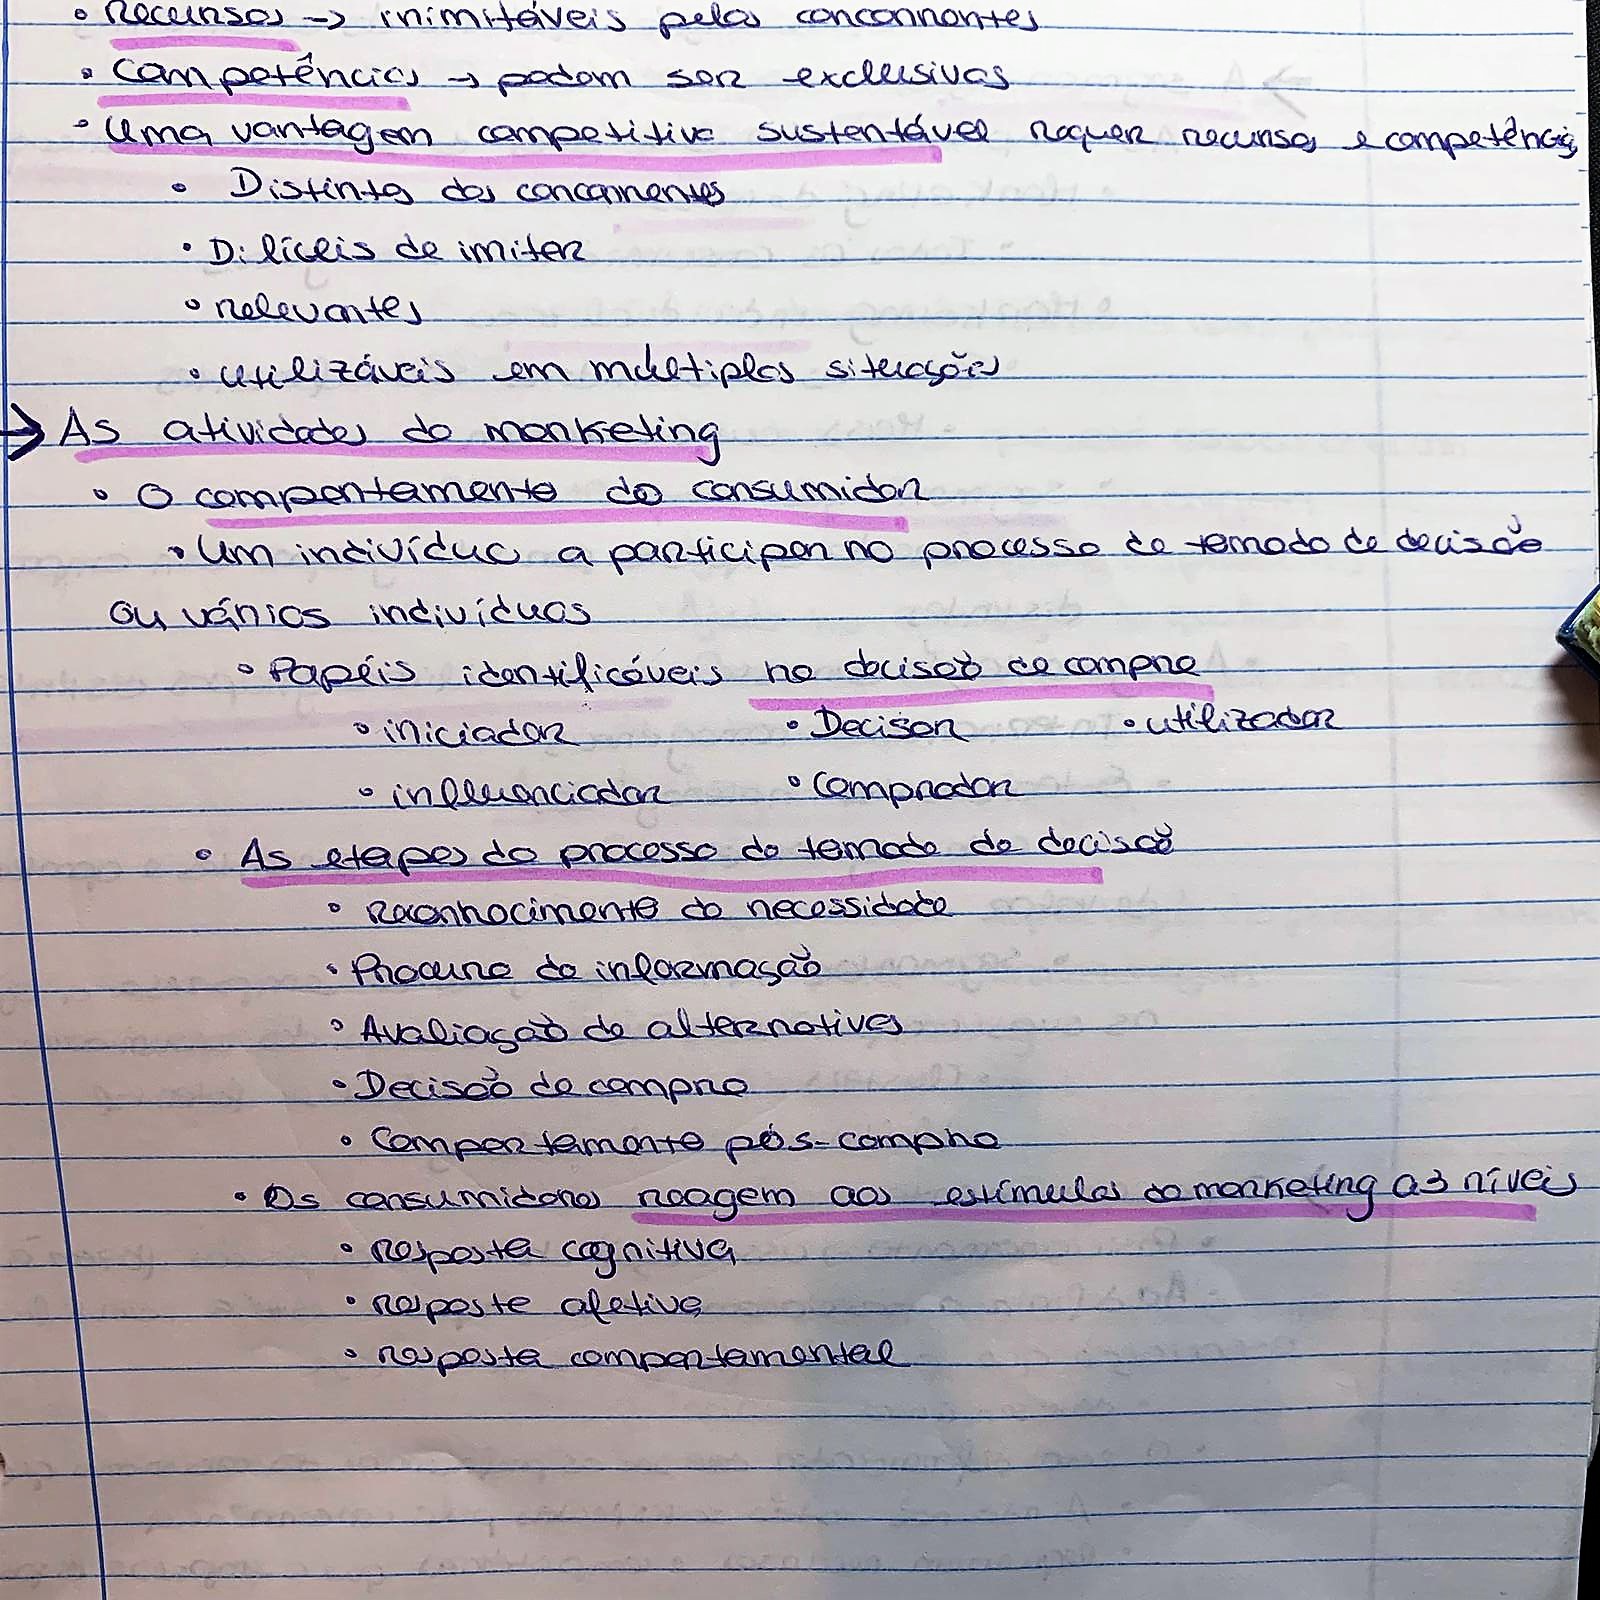 • Recursos → inimitáveis pelos concorrentes
• Competências → podem ser exclusivas
• Uma vantagem competitiva sustentável requer recursos e competências
• Distintas dos concorrentes
• Difíceis de imitar
• relevantes
• utilizáveis em múltiplas situações
→ As atividades do marketing
• O comportamento do consumidor
• Um indivíduo a participar no processo de tomada de decisão
ou vários indivíduos
• Papéis identificáveis na decisão de compra
• iniciador • Decisor • utilizador
• influenciador • Comprador
• As etapas do processo de tomada de decisão
• Reconhecimento da necessidade
• Procura de informação
• Avaliação de alternativas
• Decisão de compra
• Comportamento pós-compra
• Os consumidores reagem aos estímulos do marketing a 3 níveis
• resposta cognitiva
• resposta afetiva
• resposta comportamental